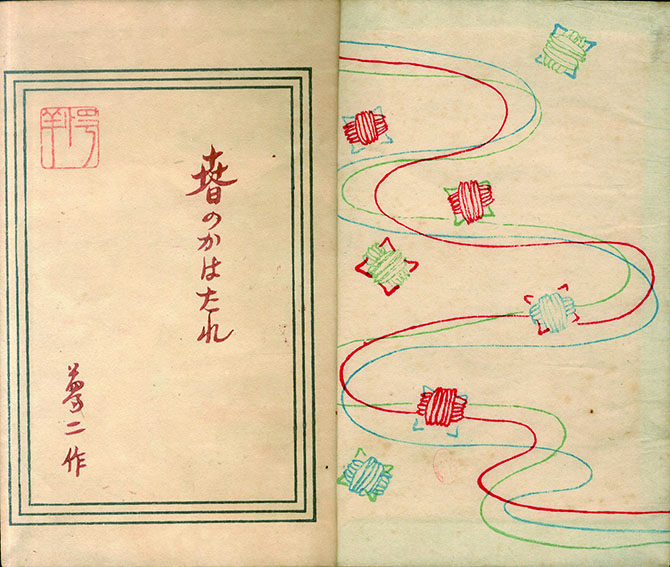 春のかはたれ
夢二作